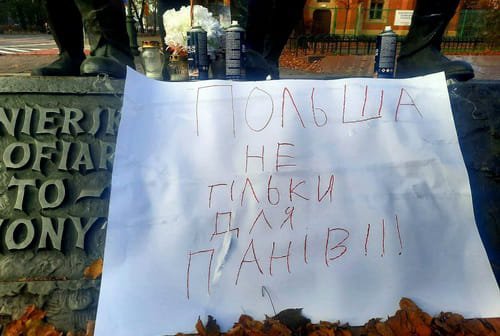 NIERSK
OFIAR
TO–
KONY
ПОЛЬША
НЕ
ТІЛЬКИ
ДЛЯ
ПАНІВ!!!